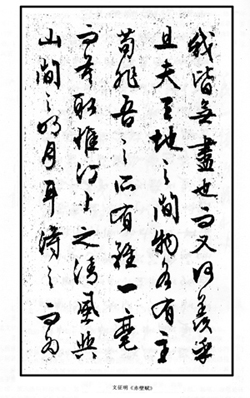 我皆無盡也而又何羨乎
且夫天地之間物各有主
苟非吾之所有雖一毫
而莫取惟江上之清風與
山間之明月耳得之而為
文征明《赤壁賦》